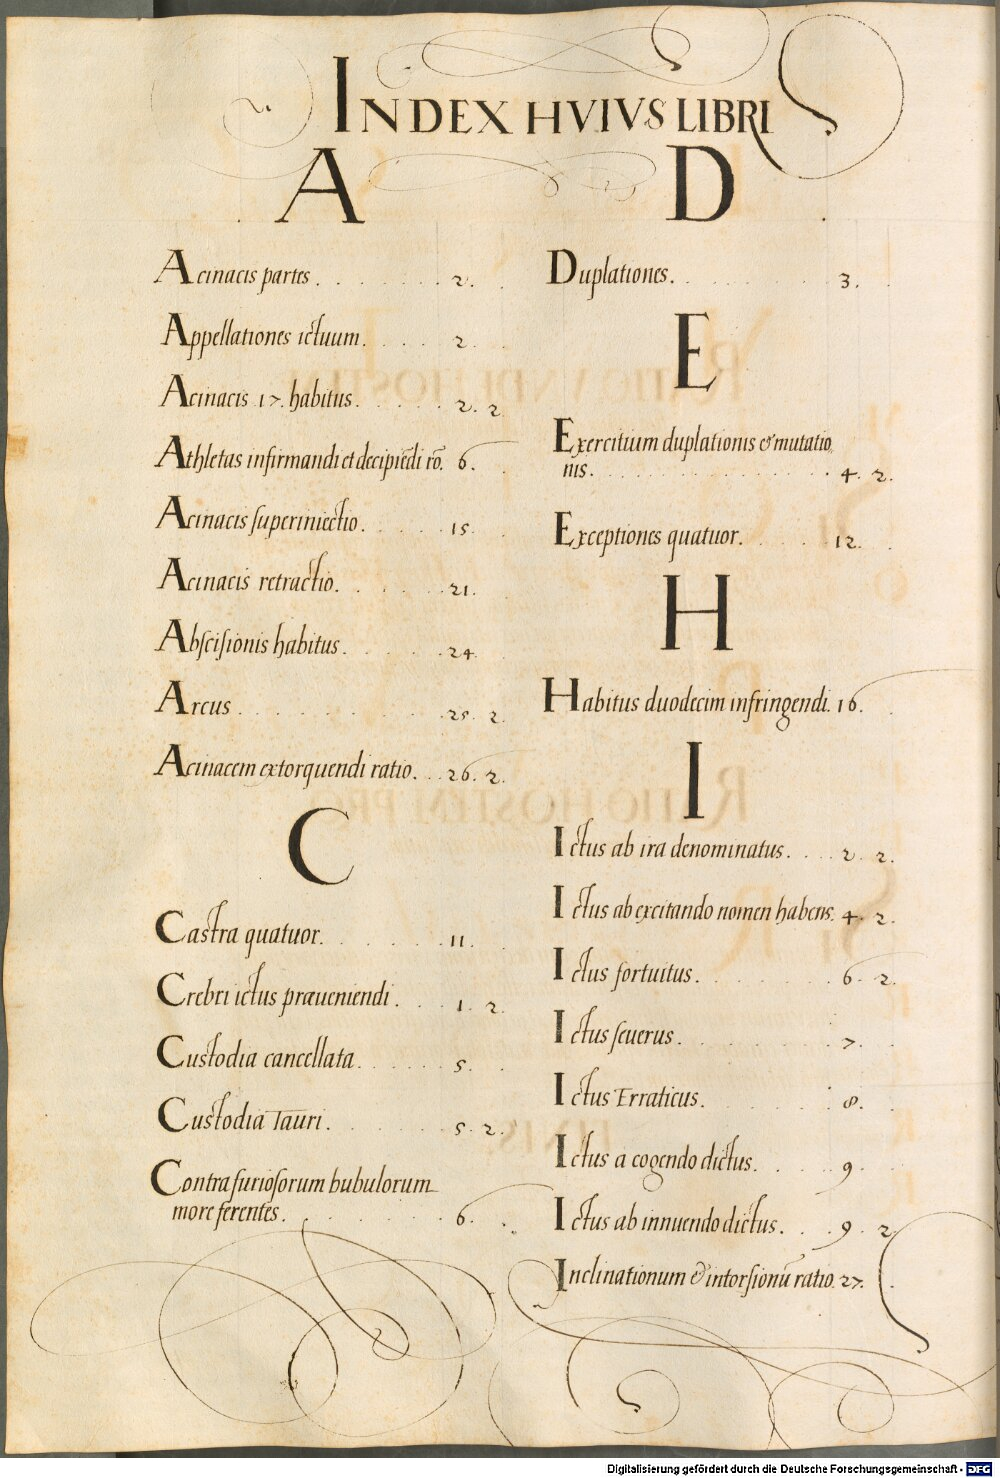 INDEX HVIVS LIBRI
A
Acinacis partes . . . . . . . 2. .
Appellationes ictuum . . . . 2
Acinacis 17. habitus . . . . . . 2. 2
Athletas infirmandi et decipiẽdi rõ. 6. .
Acinacis superiniectio . . . . . 15
Acinacis retractio. . . . . . . 21.
Abscisionis habitus . . . . . . 24
Arcus . . . . . . . . . . . 25. 2.
Acinacem extorquendi ratio. . . 26. 2.
C
Castra quatuor. . . . . . . 11.
Crebri ictus præueniendi . . . . 1. 2.
Custodia cancellata . . . . . . 5.
Custodia Tauri . . . . . . . 5. 2.
Contra furiosorum bubulorum
more ferentes . . . . . . . . 6. .
D
Duplationes. . . . . . . . . 3. .
E
Exercitium duplationis & mutatio,
nis. . . . . . . . . . . . 4. 2.
Exceptiones quatuor. . . . . 12.
H
Habitus duodecim infringendi. 16. .
I
Ictus ab ira denominatus. . . . 2. 2.
Ictus ab excitando nomen habens. 4. 2.
Ictus fortuitus . . . . . . . 6. 2.
Ictus seuerus . . . . . . . . 7.
Ictus Erraticus . . . . . . . 8.
Ictus a cogendo dictus. . . . . 9.
Ictus ab innuendo dictus. . . . 9. 2
Inclinationum & intorsionũ ratio. 27. .
Digitalisierung gefördert durch die Deutsche Forschungsgemeinschaft - DFG